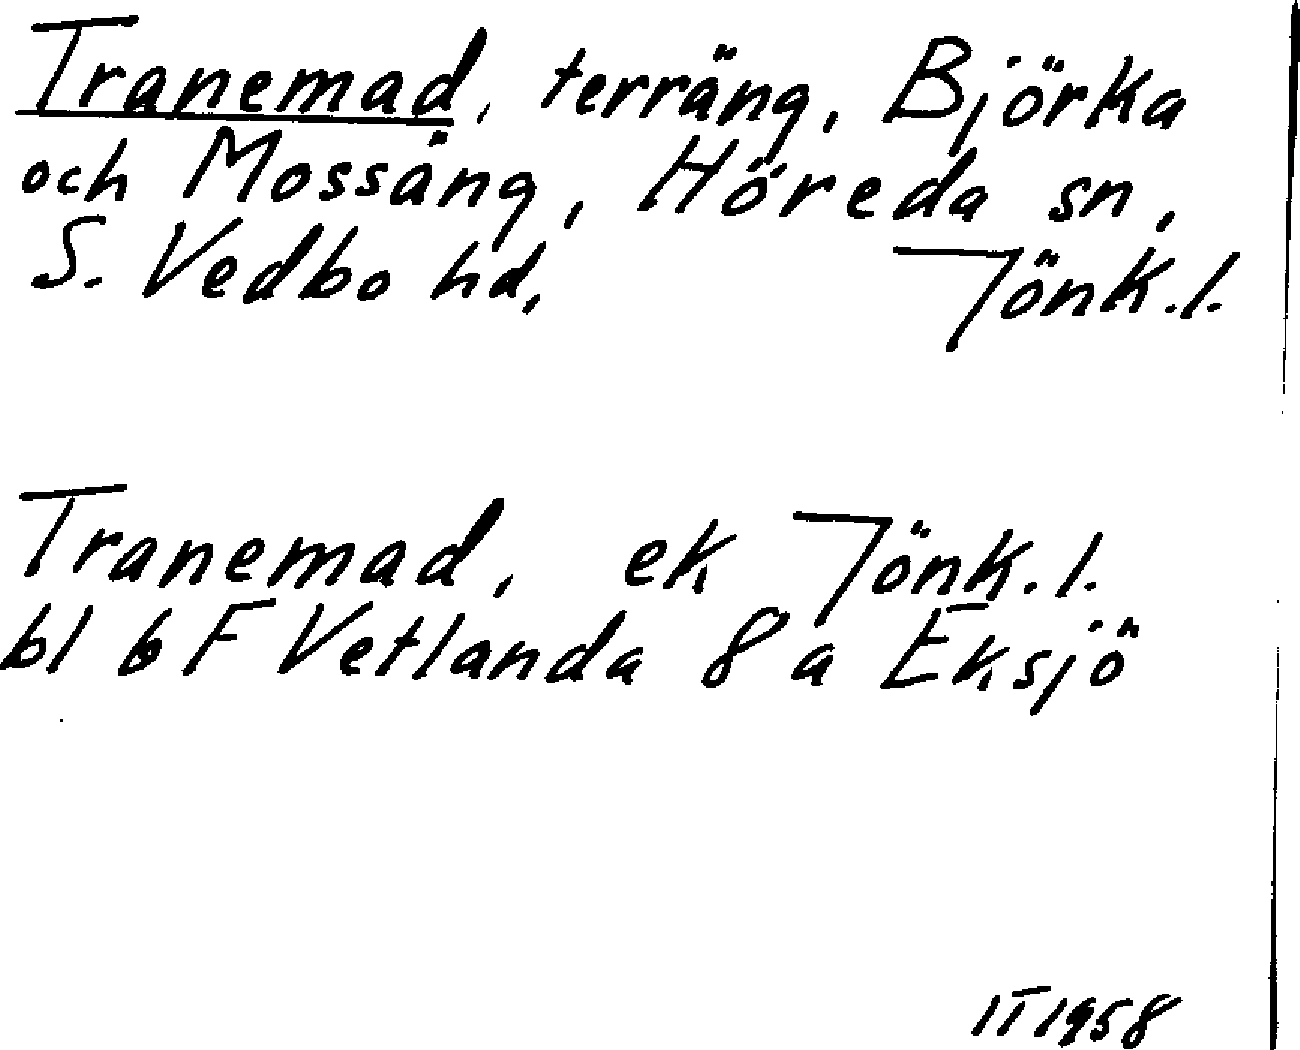 Tranemad, terräng, Björka
och Mossäng, Höreda sn,
S. Vedbo hd, Jönk.l.
Tranemad, ek Jönk.l.
bl 6 F Vetlanda 8 a Eksjö
IT 1958